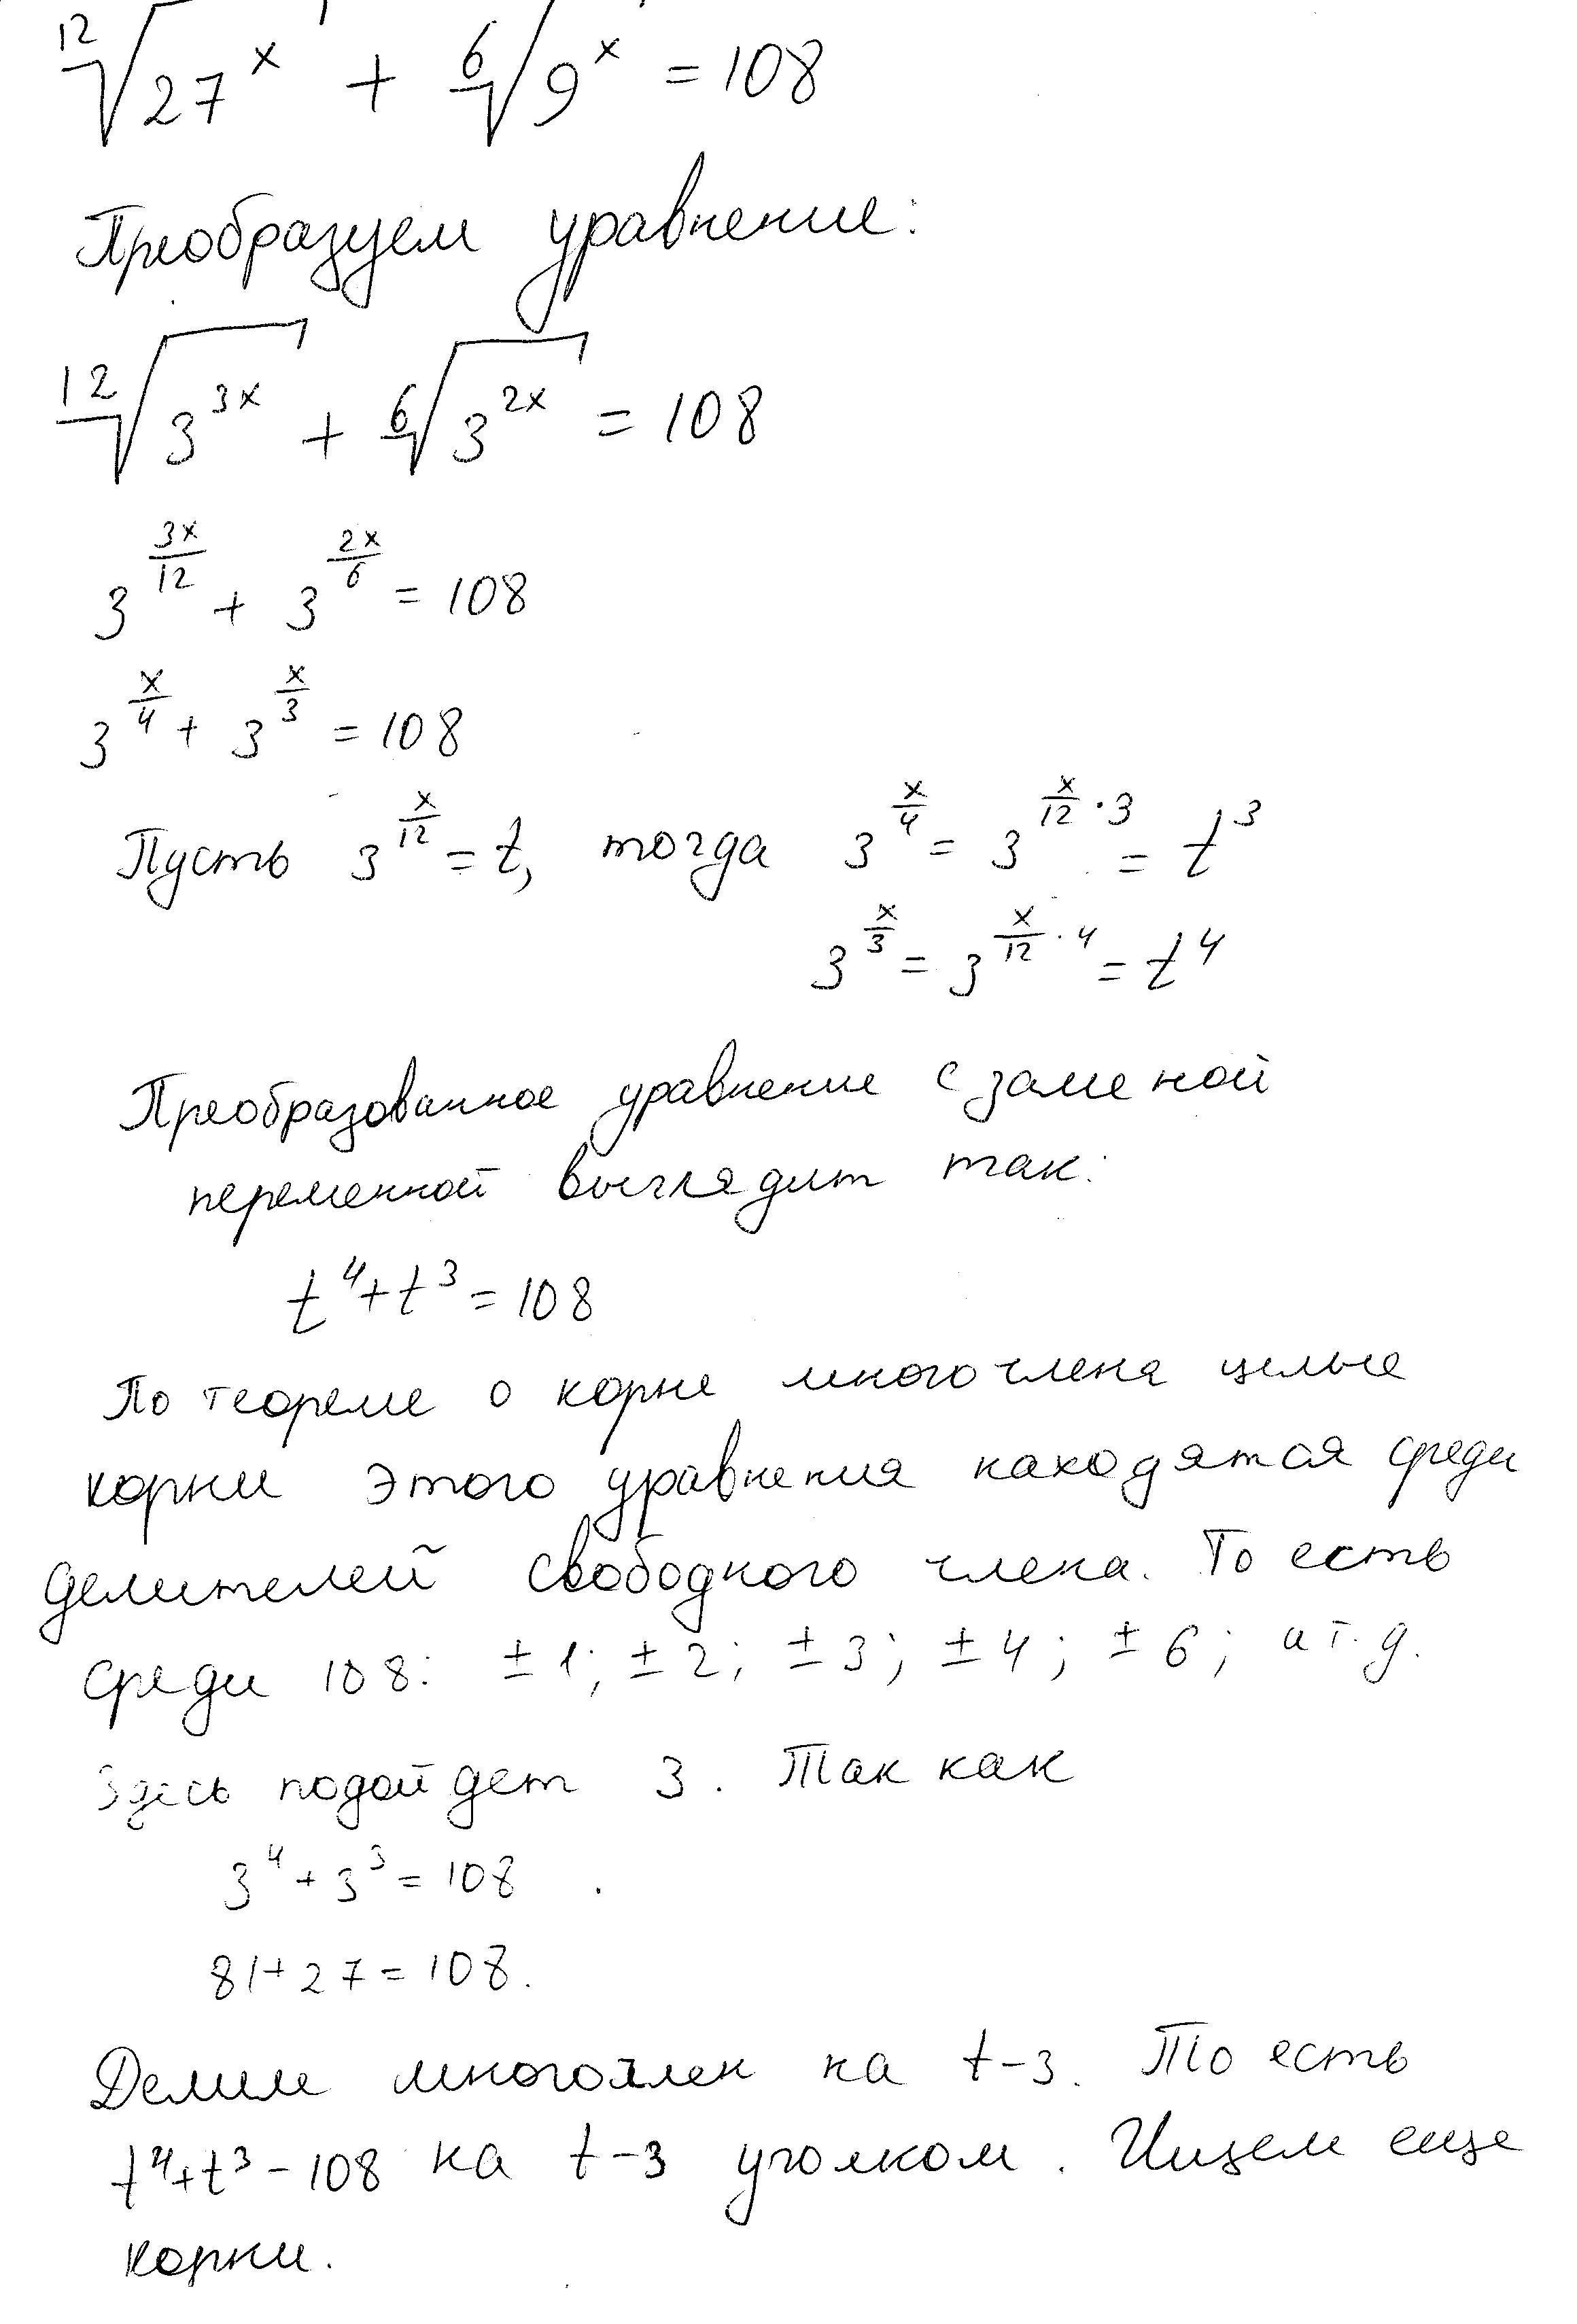 ¹²√27ˣ + ⁶√9ˣ = 108
Преобразуем уравнение:
¹²√3³ˣ + ⁶√3²ˣ = 108
3^(3x/12) + 3^(2x/6) = 108
3^(x/4) + 3^(x/3) = 108
Пусть 3^(x/12) = t, тогда 3^(x/4) = 3^(x/12 · 3) = t³
3^(x/3) = 3^(x/12 · 4) = t⁴
Преобразованное уравнение с заменой
переменной выглядит так:
t⁴ + t³ = 108
По теореме о корне многочлена целые
корни этого уравнения находятся среди
делителей свободного члена. То есть
среди 108: ±1; ±2; ±3; ±4; ±6; и т.д.
Здесь подойдет 3. Так как
3⁴ + 3³ = 108
81 + 27 = 108.
Делим многочлен на t-3. То есть
t⁴+t³-108 на t-3 уголком. Ищем еще
корни.